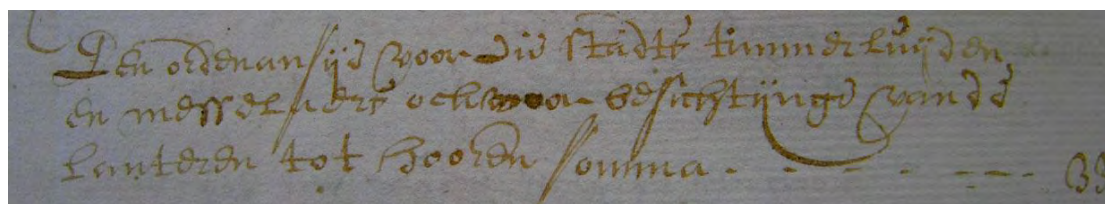 Een ordenansije voor die stadts timmerluijden,
en messelaers och voor besichtijnge vande
lanteren tot hooren somma - - - - - - 33